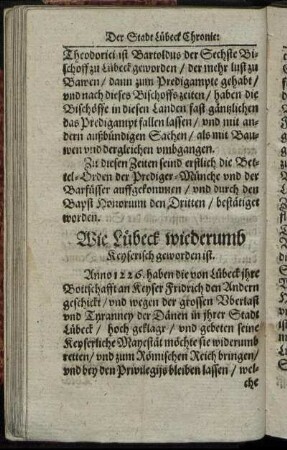 Der Stadt Lübeck Chronic:
Theodorici ist Bartoldus der Sechste Bi-
schoff zu Lübeck geworden / der mehr lust zu
Bawen / dann zum Predigampte gehabt /
vnd nach dieses Bischoffs zeiten / haben die
Bischöffe in diesen Landen fast gäntzlichen
das Predigampt fallen lassen / vnd mit an-
dern außbündigen Sachen / als mit Bau-
wen vnd dergleichen vmbgangen.
Zu diesen Zeiten seind erstlich die Bet-
tel-Orden der Prediger-Münche vnd der
Barfüsser auffgekommen / vnd durch den
Bapst Honorium den Dritten / bestätiget
worden.
Wie Lübeck wiederumb
Keyserisch geworden ist.
Anno 1226. haben die von Lübeck jhre
Bottschafft an Keyser Fridrich den Andern
geschickt / vnd wegen der grossen Vberlast
vnd Tyranney der Dänen in jhrer Stadt
Lübeck / hoch geklagt / vnd gebeten seine
Keyserliche Mayestät möchte sie widerumb
retten / vnd zum Römischen Reich bringen /
vnd bey den Privilegijs bleiben lassen / wel-
che